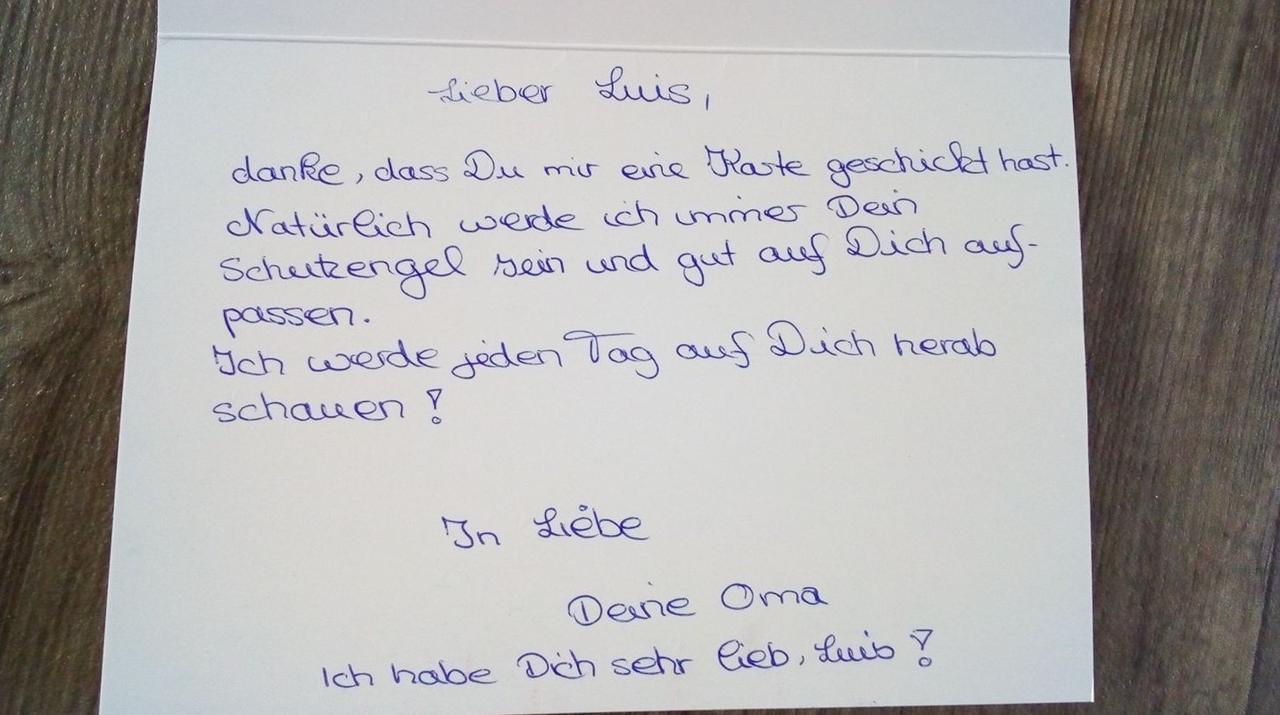 Lieber Luis,
danke, dass Du mir eine Karte geschickt hast.
Natürlich werde ich immer Dein
Schutzengel sein und gut auf Dich auf-
passen.
Ich werde jeden Tag auf Dich herab
schauen!
In Liebe
Deine Oma
Ich habe Dich sehr lieb, Luis!